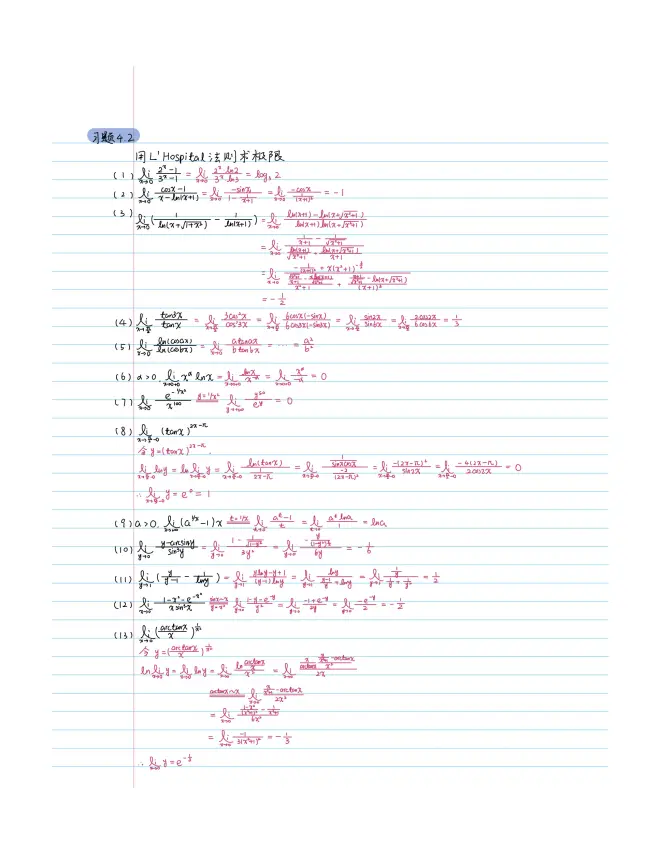 习题4.2
用L'Hospital法则求极限
(1) lim_{x→0} (2^x-1)/(3^x-1) = lim_{x→0} (2^x ln2)/(3^x ln3) = log_3 2
(2) lim_{x→0} (cosx-1)/(x-ln(x+1)) = lim_{x→0} (-sinx)/(1-1/(x+1)) = lim_{x→0} (-cosx)/(1/(x+1)^2) = -1
(3) lim_{x→0} (1/ln(x+√(1+x²)) - 1/ln(x+1)) = lim_{x→0} (ln(x+1)-ln(x+√(x²+1)))/(ln(x+1)ln(x+√(x²+1)))
= lim_{x→0} (1/(x+1) - 1/√(x²+1))/(ln(x+1)/√(x²+1) + ln(x+√(x²+1))/(x+1))
= -1/2
(4) lim_{x→π/2} tan3x/tanx = lim_{x→π/2} 3cos²x/cos²3x = lim_{x→π/2} 6cosx(-sinx)/6cos3x(-sin3x) = lim_{x→π/2} sin2x/sin6x = lim_{x→π/2} 2cos2x/6cos6x = 1/3
(5) lim_{x→0} ln(cosax)/ln(cosbx) = lim_{x→0} a tanax/b tanbx = ⋯ = a²/b²
(6) α>0. lim_{x→0+0} x^α lnx = lim_{x→0+0} lnx/x^-α = lim_{x→0+0} x^α/-α = 0
(7) lim_{x→0} e^(-1/x²)/x^100 (y=1/x²)= lim_{y→+∞} y^50/e^y = 0
(8) lim_{x→π/2-0} (tanx)^(2x-π)
令 y=(tanx)^(2x-π)
lim_{x→π/2-0} lny = ln lim_{x→π/2-0} y = lim_{x→π/2-0} ln(tanx)/(1/(2x-π)) = lim_{x→π/2-0} (1/(sinxcosx))/(-2/(2x-π)²) = lim_{x→π/2-0} -(2x-π)²/sin2x = lim_{x→π/2-0} -4(2x-π)/2cos2x = 0
∴ lim_{x→π/2-0} y = e^0 = 1
(9) a>0. lim_{x→∞} (a^(1/x)-1)x (t=1/x)= lim_{t→0} (a^t-1)/t = lim_{t→0} (a^t lna)/1 = lna
(10) lim_{y→0} (y-arcsiny)/sin³y = lim_{y→0} (1-1/√(1-y²))/3y² = lim_{y→0} (-y/(1-y²)^(3/2))/6y = -1/6
(11) lim_{y→1} (y/(y-1) - 1/lny) = lim_{y→1} (ylny-y+1)/((y-1)lny) = lim_{y→1} lny/((y-1)/y+lny) = lim_{y→1} (1/y)/(1/y²+1/y) = 1/2
(12) lim_{x→0} (1-x²-e^(-x²))/(x sin³x) (sinx~x, y=x²)= lim_{y→0} (1-y-e^-y)/y² = lim_{y→0} (-1+e^-y)/2y = lim_{y→0} (-e^-y)/2 = -1/2
(13) lim_{x→0} (arctanx/x)^(1/x²)
令 y=(arctanx/x)^(1/x²)
ln lim_{x→0} y = lim_{x→0} lny = lim_{x→0} ln(arctanx/x)/x² = lim_{x→0} (x/arctanx · (x/(x²+1)-arctanx)/x²)/2x
(arctanx~x)= lim_{x→0} (x/(x²+1)-arctanx)/2x³
= lim_{x→0} ((1-x²)/(x²+1)² - 1/(x²+1))/6x²
= lim_{x→0} -1/(3(x²+1)²) = -1/3
∴ lim_{x→0} y = e^(-1/3)